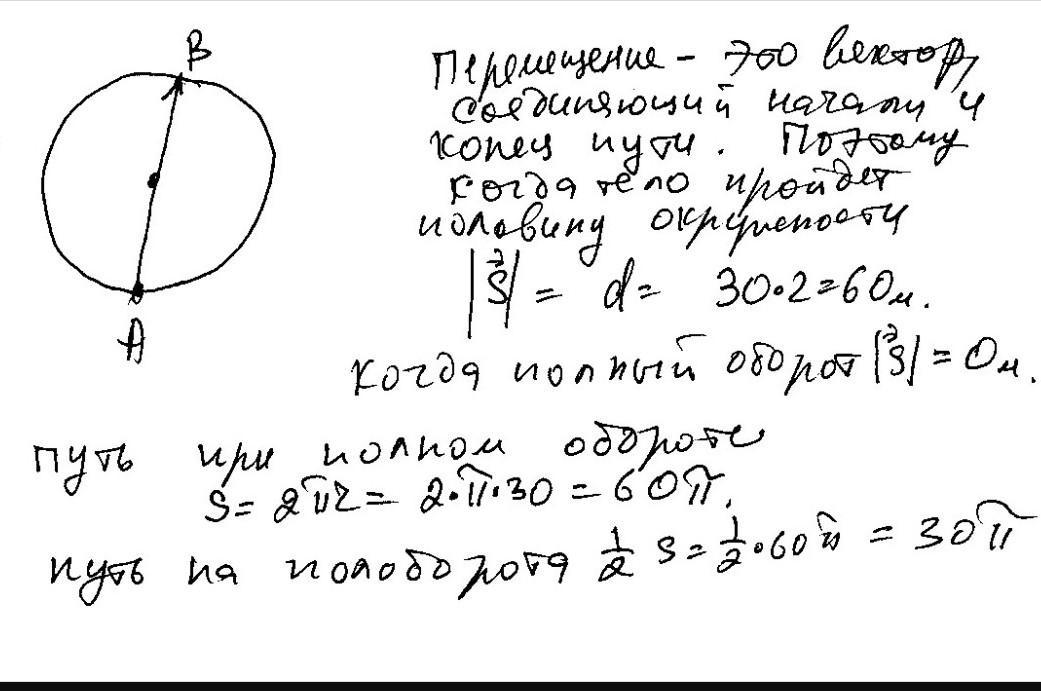 B
Перемещение - это вектор,
соединяющий начали и
конец пути. Поэтому
когда тело пройдет
половину окружности
|S⃗| = d = 30•2=60м.
A
когда полный оборот |S⃗| = 0м.
путь при полном обороте
S= 2πr = 2•π•30 = 60π.
путь на полоборота 1/2 S= 1/2•60π = 30π